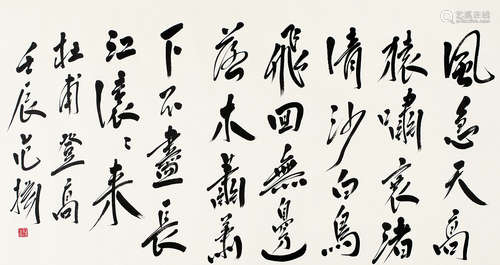 風急天高
猿嘯哀渚
清沙白鳥
飛回無邊
落木蕭蕭
下不盡長
江滚〻来
杜甫登高
壬辰范